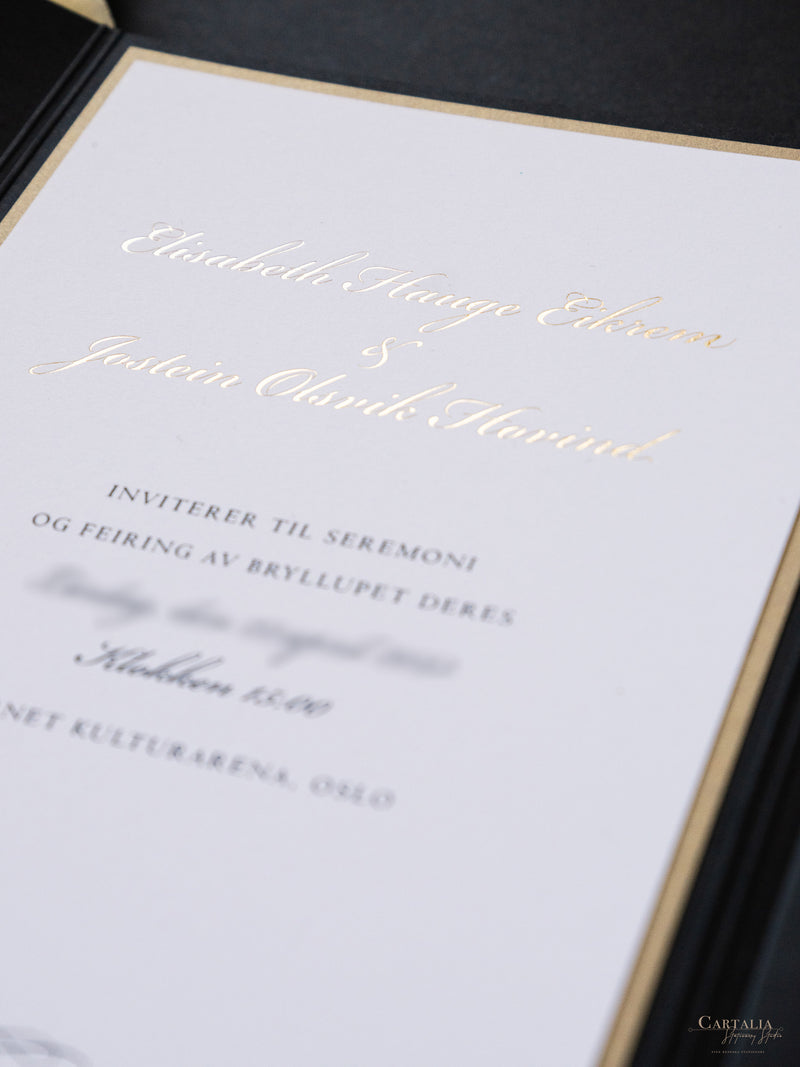 Elisabeth Hauge Eikrem
&
Jostein Olsvik Hovind
INVITERER TIL SEREMONI
OG FEIRING AV BRYLLUPET DERES
Klokken 15:00
KULTURARENA, OSLO
CARTALIA
Stationery Studio